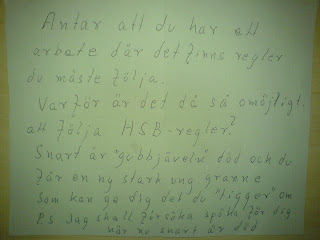 Antar att du har ett
arbete där det finns regler
du måste följa.
Varför är det då så omöjligt
att följa HSB-regler?
Snart är "gubbjäveln" död och du
får en ny stark ung granne
som kan ge dig det du "tigger" om
P.S Jag skall försöka spöka för dig
när nu snart är död